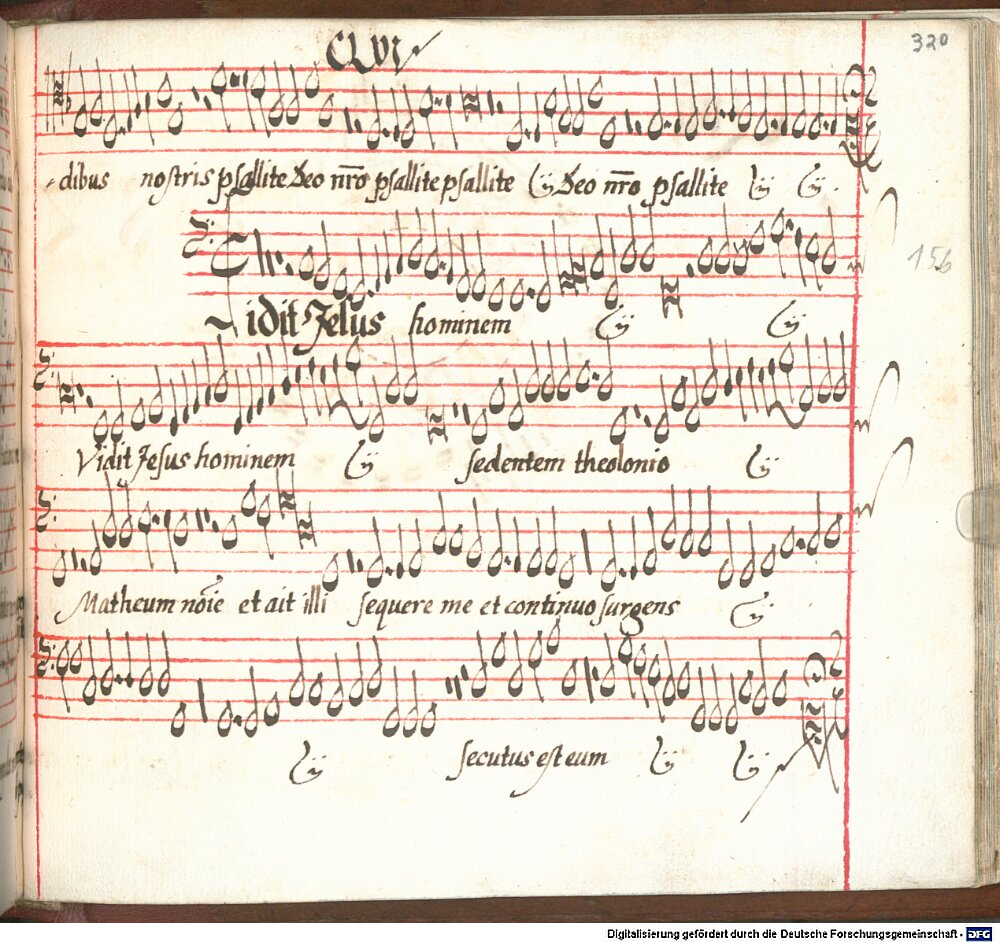 CLVI
320
-dibus nostris psallite Deo nr̄o psallite psallite ij Deo nr̄o psallite ij ij.
156
Vidit Jesus hominem ij ij
Vidit Jesus hominem ij sedentem theolonio ij
Matheum nōie et ait illi sequere me et continuo surgens ij
ij secutus est eum ij ij
Digitalisierung gefördert durch die Deutsche Forschungsgemeinschaft - DFG